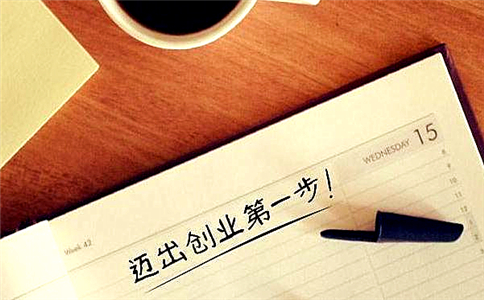 WEDNESDAY 15
Week 42
迈出创业第一步!
8
9
10
11
12
1